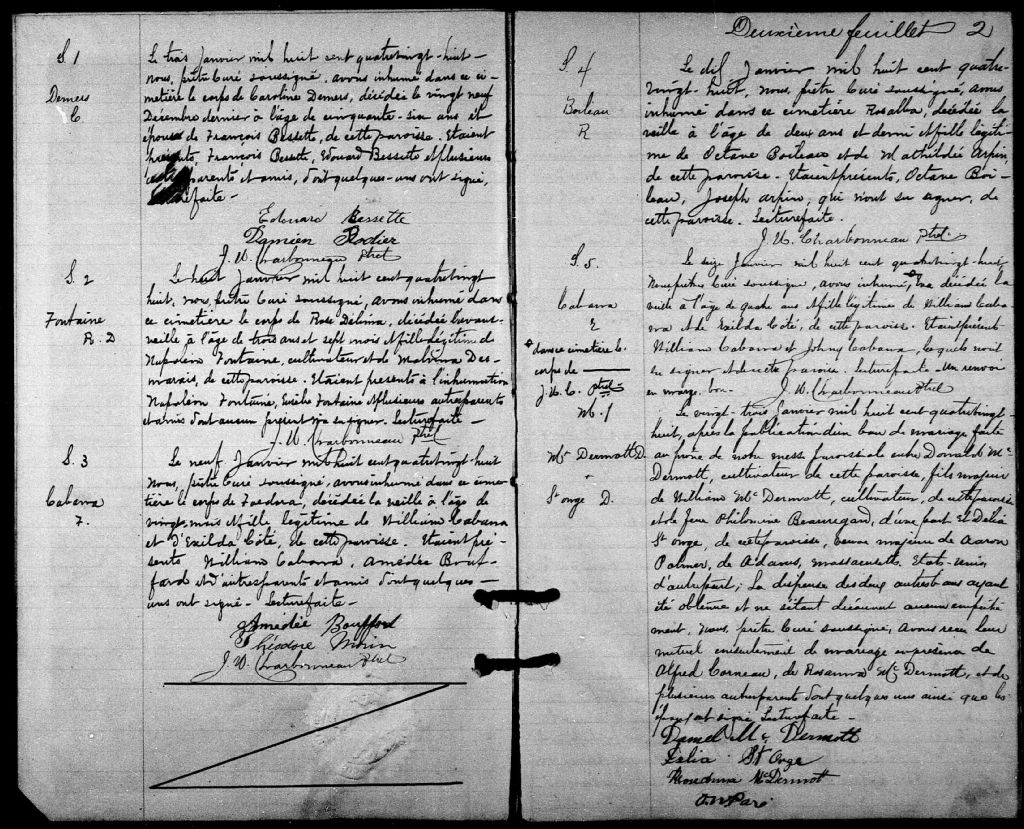 S. 1
Demers
C
Le trois Janvier mil huit cent quatrevingt-huit
nous, prêtre Curé soussigné, avons inhumé dans ce ci-
metière le corps de Caroline Demers, décédée le vingt neuf
Décembre dernier à l'âge de cinquante-six ans et
épouse de François Bessette, de cette paroisse. Etaient
présents, François Bessette, Edouard Bessette et plusieurs
parents et amis, dont quelques-uns ont signé,
faite-
Edouard Bessette
Damien Rodier
J. U. Charbonneau Ptre
S. 2
Fontaine
R. D
Le huit Janvier mil huit cent quatrevingt
huit, Nous, prêtre Curé soussigné, avons inhumé dans
ce cimetière le corps de Rose Délima, décédée l'avant-
veille à l'âge de trois ans et sept mois et fille légitime de
Napoléon Fontaine, cultivateur et de Malvina Des-
marais, de cette paroisse. Etaient presents à l'inhumation
Napoléon Fontaine, Fontaine et plusieurs autres parents
et amis dont aucun présent n'a su signer. Lecture faite-
J. U. Charbonneau Ptre
S. 3
Cabana
F.
Le neuf Janvier mil huit cent quatrevingt-huit
Nous, prêtre Curé soussigné, avons inhumé dans ce cime-
tière le corps de Faedora, décédée la veille à l'âge de
vingt mois et fille légitime de William Cabana
et d'Exilda Côté, de cette paroisse. Etaient pré-
sents William Cabana, Amédée Bouf-
fard et d'autres parents et amis dont quelques-
uns ont signé- Lecture faite-
Amédée Bouffard
Théodore Morin
J. U. Charbonneau Ptre
Deuxième feuillet 2
S. 4
Boileau
R
Le dix Janvier mil huit cent quatre-
vingt-huit, Nous, prêtre Curé soussigné, avons
inhumé dans ce cimetière Rosalba, décédée la
veille à l'âge de deux ans et demi et fille légiti-
me de Octave Boileau et de Mathilde Arpin,
de cette paroisse. Etaient présents, Octave Boi-
leau, Joseph Arpin, qui n'ont su signer, de
cette paroisse. Lecture faite.
J. U. Charbonneau Ptre
S. 5.
Cabana
E
dans ce cimetière le
corps de
J. U. C. Ptre
Le seize Janvier mil huit cent quatrevingt-huit,
Nous prêtre Curé soussigné, avons inhumé, décédée la
veille à l'âge de quatre ans et fille légitime de William Caba-
na et de Exilda Côté, de cette paroisse. Etaient présents
William Cabana et Johny Cabana, lesquels n'ont
su signer et de cette paroisse. Lecture faite- Un renvoi
en marge bon. J. U. Charbonneau Ptre
M. 1
Mc Dermott D.
St Onge D.
Le vingt-trois Janvier mil huit cent quatrevingt-
huit, après la publication d'un ban de mariage faite
au prône de notre messe paroissiale entre Donald Mc
Dermott, cultivateur de cette paroisse, fils majeur
de William Mc Dermott, cultivateur, de cette paroisse
et de feue Philomène Beauregard, d'une part Et Délia
St Onge, de cette paroisse, veuve majeure de Aaron
Palmer, de Adams, Massachusetts. Etats-Unis,
d'autre part; La dispense des deux autres bans ayant
été obtenue et ne s'étant découvert aucun empêche
ment, Nous, prêtre Curé soussigné, avons reçu leur
mutuel consentement de mariage en présence de
Alfred Corneau, de Rosanna Mc Dermott, et de
plusieurs autres parents dont quelques uns ainsi que les
époux ont signé Lecture faite-
Daniel Mc Dermott
Delia St Onge
Rosanna Mc Dermott